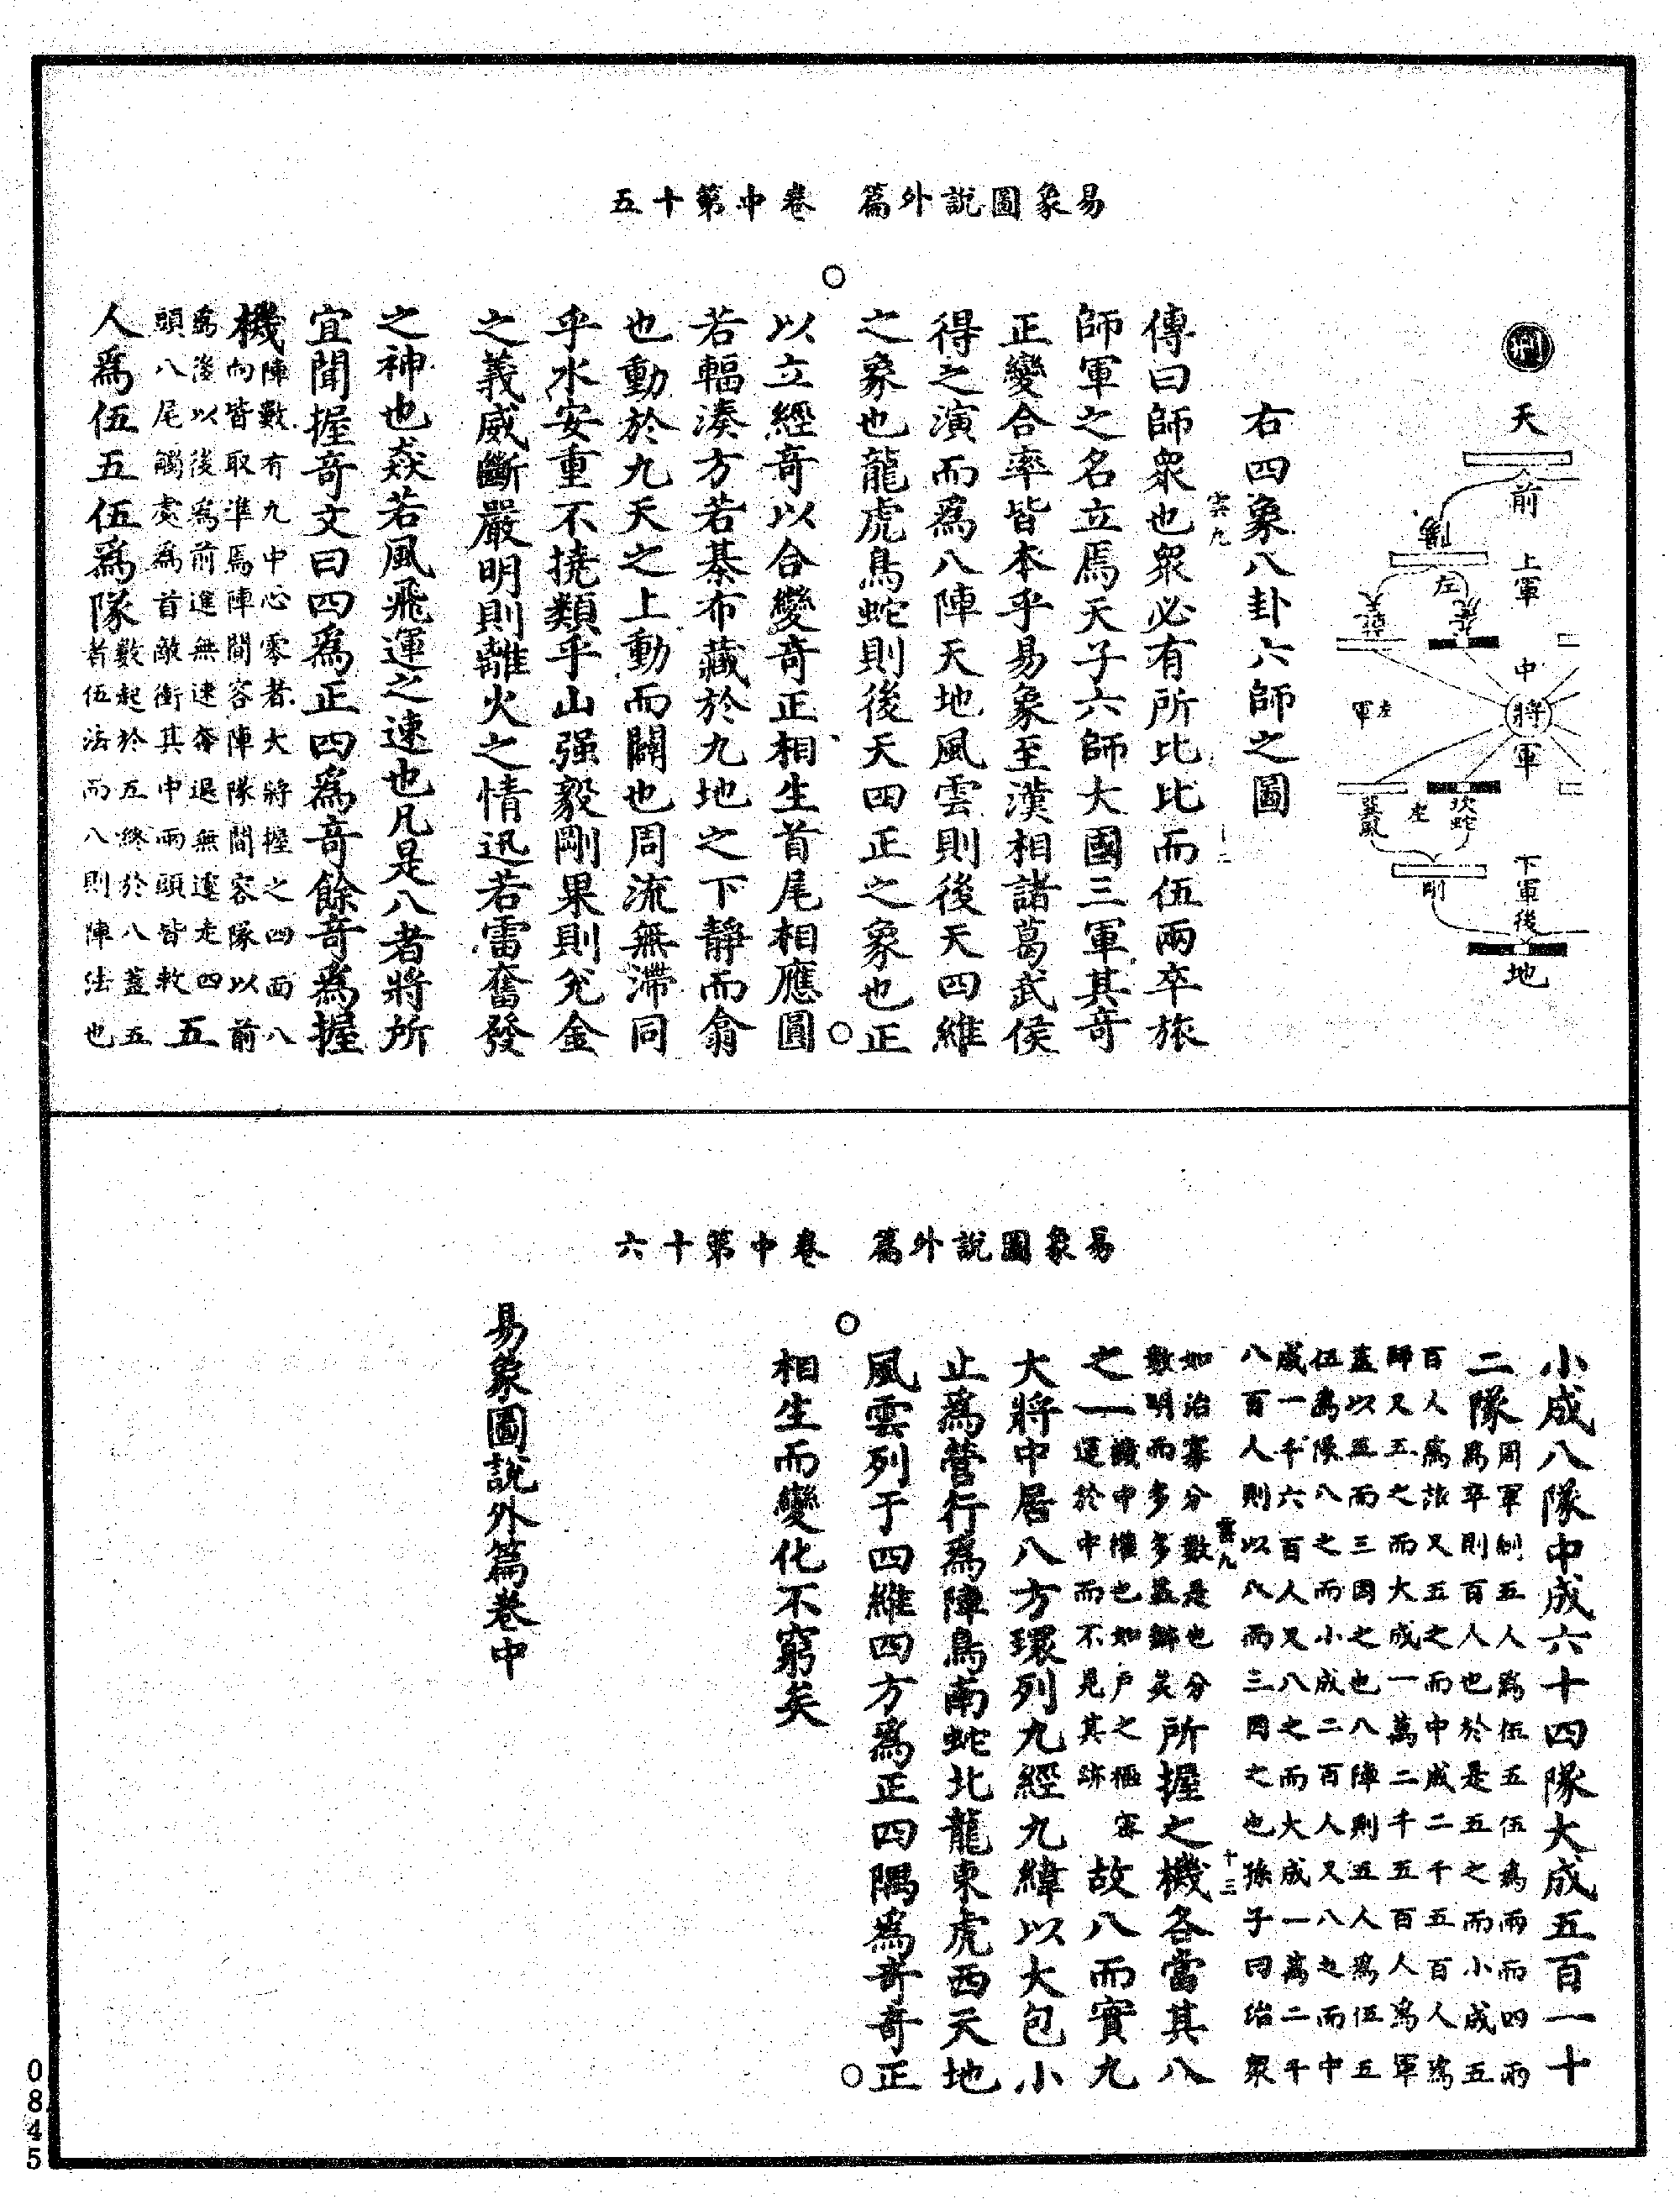 易象圖說外篇　卷中第十五
天
前
上軍
左
中
將
軍
左
軍
左
坎蛇
巽風
剛
下軍後
地
右四象八卦六師之圖
雲九
十二
傳曰師衆也衆必有所比比而伍兩卒旅
師軍之名立焉天子六師大國三軍其奇
正變合率皆本乎易象至漢相諸葛武侯
得之演而爲八陣天地風雲則後天四維
之象也龍虎鳥蛇則後天四正之象也正
以立經奇以合變奇正相生首尾相應圓
若輻湊方若棊布藏於九地之下靜而翕
也動於九天之上動而闢也周流無滯同
乎水安重不撓類乎山强毅剛果則兊金
之義威斷嚴明則離火之情迅若雷奮發
之神也猋若風飛運之速也凡是八者將所
宜聞握奇文曰四爲正四爲奇餘奇爲握
機陣數有九中心零者大將握之四面八
向皆取準焉陣間容陣隊間容隊以前
爲後以後爲前進無速奔退無遽走四
頭八尾觸處爲首敵衝其中兩頭皆救五
人爲伍五伍爲隊數起於五終於八蓋五
者伍法而八則陣法也
易象圖說外篇　卷中第十六
小成八隊中成六十四隊大成五百一十
二隊周軍制五人爲伍五伍爲兩而四兩
爲卒則百人也於是五之而小成五
百人爲旅又五之而中成二千五百人爲
師又五之而大成一萬二千五百人爲軍
蓋以五五而三因之也八陣則五人爲伍五
伍爲隊八之而小成二百人又八之而中
成一千六百人又八之而大成一萬二千
八百人則以八八而三因之也孫子曰治衆
如治寡分數是也分
數明而多多益辦矣所握之機各當其八
雲九
十三
之一機中權也如戶之樞
運於中而不見其跡故八而實九
大將中居八方環列九經九緯以大包小
止爲營行爲陣鳥南蛇北龍東虎西天地
風雲列于四維四方爲正四隅爲奇奇正
相生而變化不窮矣
易象圖說外篇卷中
0845